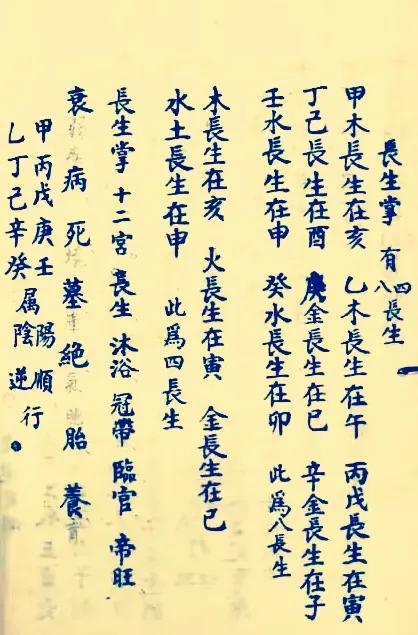 長生掌 有四八長生
甲木長生在亥 乙木長生在午 丙戊長生在寅
丁己長生在酉 庚金長生在巳 辛金長生在子
壬水長生在申 癸水長生在卯 此為八長生
木長生在亥 火長生在寅 金長生在巳
水土長生在申 此為四長生
長生掌 十二宮 長生 沐浴 冠帶 臨官 帝旺
衰 病 死 墓 絕 胎 養
甲丙戊庚壬陽順行
乙丁己辛癸属陰逆。